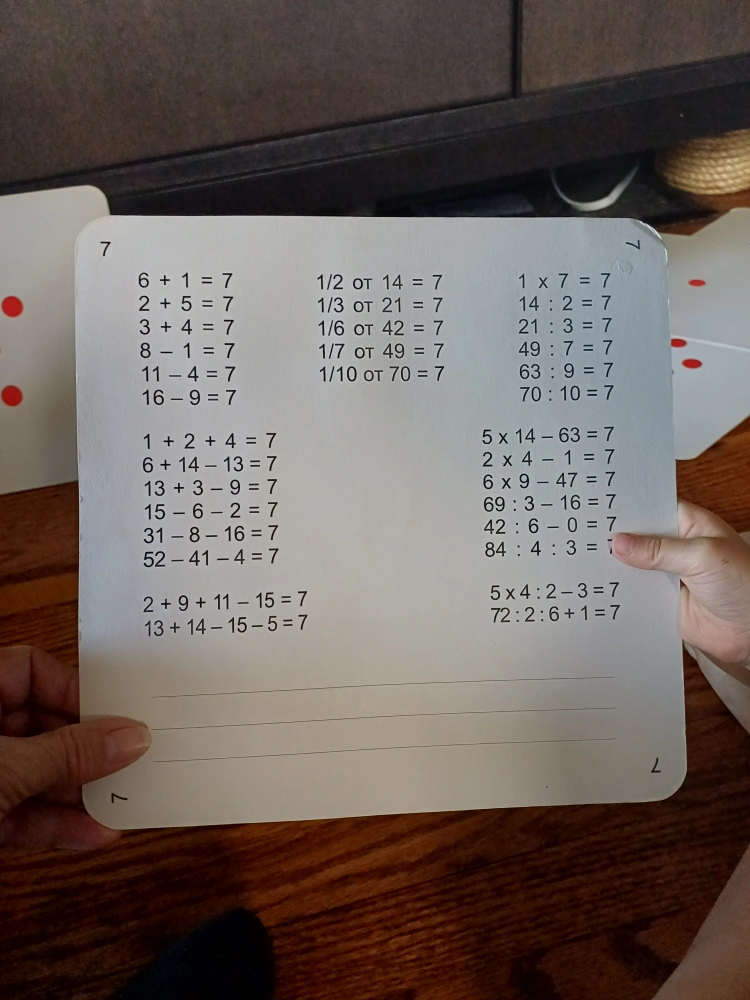 7
7
6 + 1 = 7
2 + 5 = 7
3 + 4 = 7
8 – 1 = 7
11 – 4 = 7
16 – 9 = 7
1/2 от 14 = 7
1/3 от 21 = 7
1/6 от 42 = 7
1/7 от 49 = 7
1/10 от 70 = 7
1 x 7 = 7
14 : 2 = 7
21 : 3 = 7
49 : 7 = 7
63 : 9 = 7
70 : 10 = 7
1 + 2 + 4 = 7
6 + 14 – 13 = 7
13 + 3 – 9 = 7
15 – 6 – 2 = 7
31 – 8 – 16 = 7
52 – 41 – 4 = 7
5 x 14 – 63 = 7
2 x 4 – 1 = 7
6 x 9 – 47 = 7
69 : 3 – 16 = 7
42 : 6 – 0 = 7
84 : 4 : 3 = 7
2 + 9 + 11 – 15 = 7
13 + 14 – 15 – 5 = 7
5 x 4 : 2 – 3 = 7
72 : 2 : 6 + 1 = 7
7
7